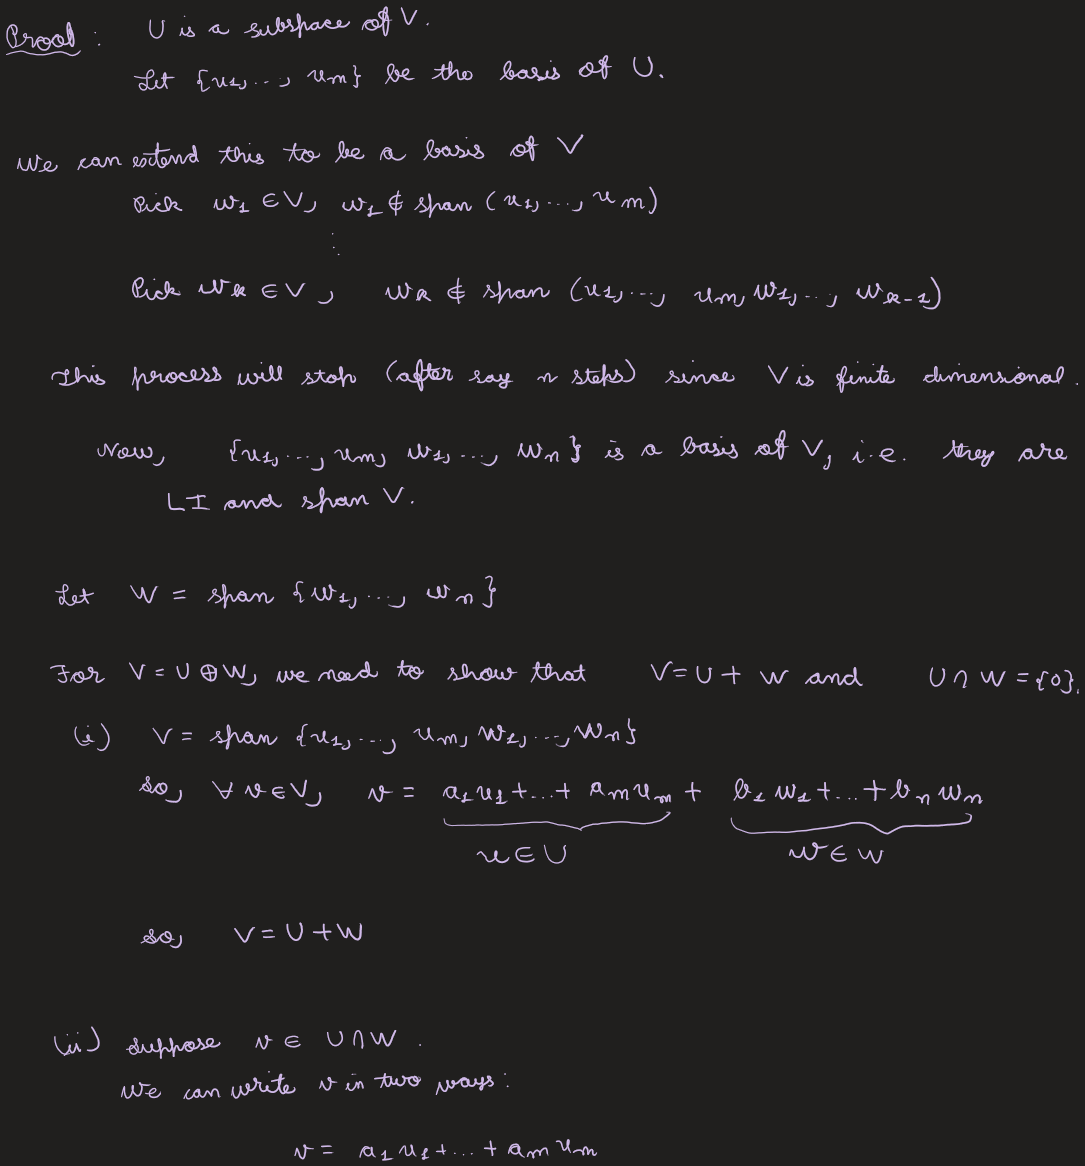 Proof : U is a subspace of V.
Let {u1, ... , um} be the basis of U.
We can extend this to be a basis of V
Pick w1 ∈ V, w1 ∉ span (u1, ... , um)
⋮
Pick wk ∈ V , wk ∉ span (u1, ..., um, w1, ... , wk-1)
This process will stop (after say n steps) since V is finite dimensional.
Now, {u1, ..., um, w1, ..., wn} is a basis of V, i.e. they are
LI and span V.
Let W = span {w1, ..., wn}
For V = U ⊕ W, we need to show that V = U + W and U ∩ W = {0}.
(i) V = span {u1, ..., um, w1, ..., wn}
so, ∀ v ∈ V, v = a1u1 + ... + amum + b1w1 + ... + bnwn
u ∈ U w ∈ W
so, V = U + W
(ii) Suppose v ∈ U ∩ W .
We can write v in two ways :
v = a1u1 + ... + amum